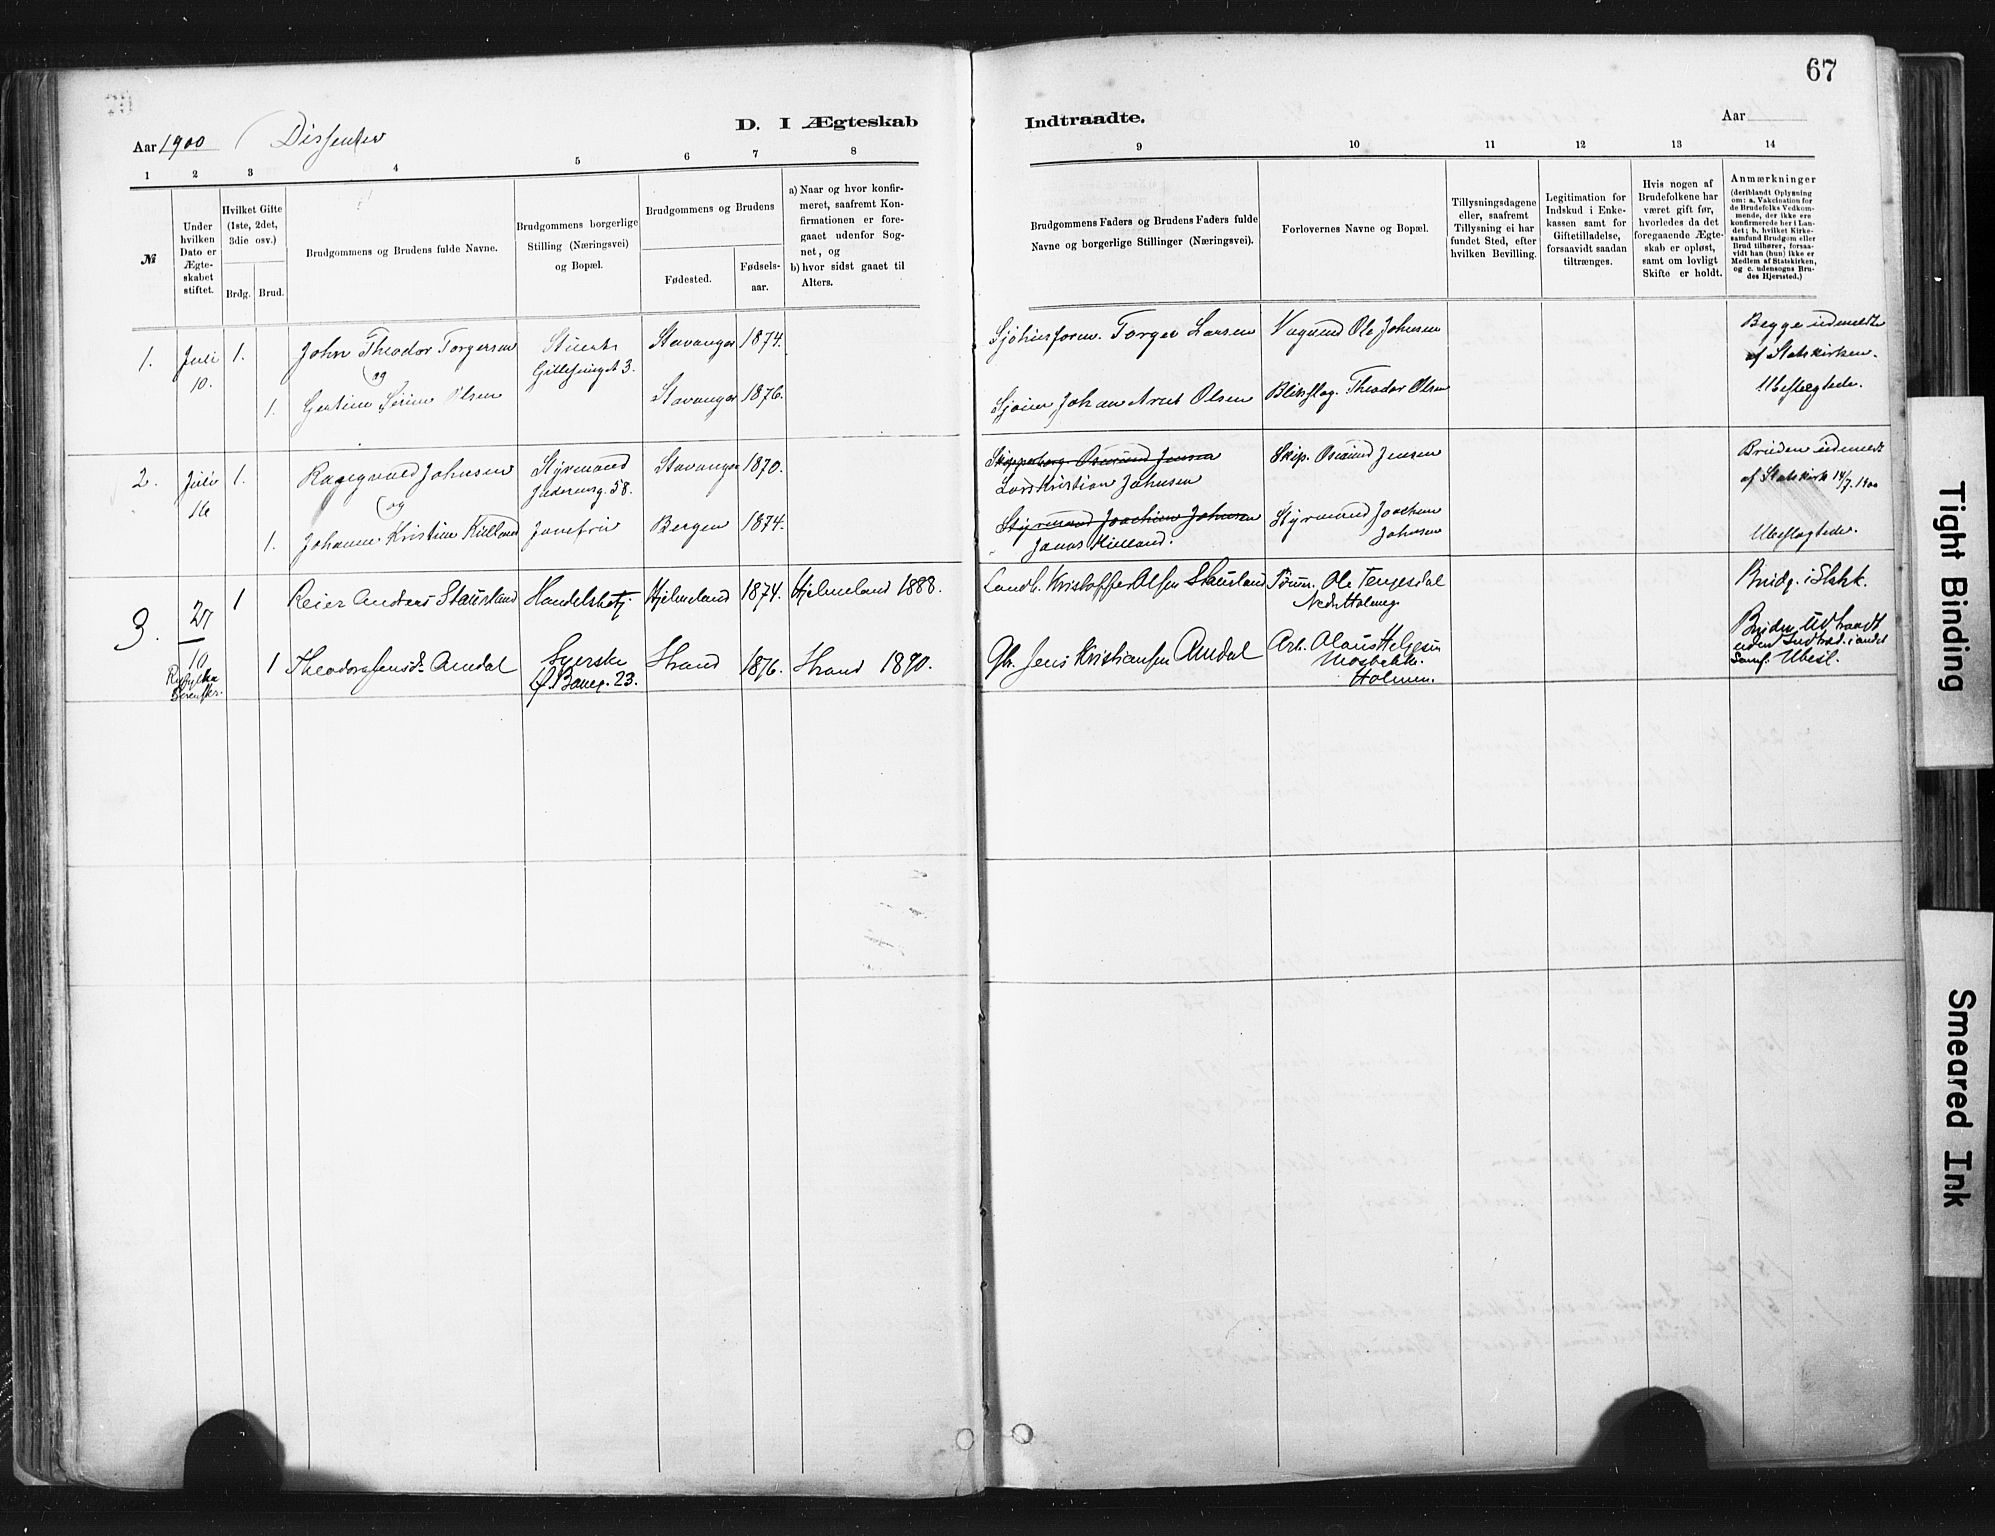 67
Aar 1900 Dissenter
D. I Ægteskab
Indtraadte.
Aar
1 2 3 4 5 6 7 8
9 10 11 12 13 14
№
Under hvilken Dato er Ægteskabet stiftet.
Hvilket Gifte (1ste, 2det, 3die osv.)
Brdg. Brud.
Brudgommens og Brudens fulde Navne.
Brudgommens borgerlige Stilling (Næringsvei) og Bopæl.
Brudgommens og Brudens
Fødested.
Fødsels-aar.
a) Naar og hvor konfir-
meret, saafremt Kon-
firmationen er fore-
gaaet udenfor Sog-
net, og
b) hvor sidst gaaet til
Alters.
Brudgommens Faders og Brudens Faders fulde
Navne og borgerlige Stillinger (Næringsvei).
Forlovernes Navne og Bopæl.
Tillysningsdagene
eller, saafremt
Tillysning ei har
fundet Sted, efter
hvilken Bevilling.
Legitimation for
Indskud i Enke-
kassen samt for
Giftetilladelse,
forsaavidt saadan
tiltrænges.
Hvis nogen af
Brudefolkene har
været gift før,
hvorledes da det
foregaaende Ægte-
skab er opløst,
samt om lovligt
Skifte er holdt.
Anmærkninger
(deriblandt Oplysning
om: a. Vakcination for
de Brudefolks Vedkom-
mende, der ikke ere
konfirmerede her i Lan-
det; b. hvilket Kirke-
samfund Brudgom eller
Brud tilhører, forsaa-
vidt han (hun) ikke er
Medlem af Statskirken,
og c. udensogns Bru-
des Hjemsted.)
1. Juli 10. 1. John Theodor Torgersen Stuert Stavanger 1874. Sjøhusform. Torger Larsen Vognmd Ole Johnsen Begge udmeldte
og 3. af Statskirken.
1. Gentine Serine Olsen Stavanger 1876. Johan Arnt Olsen Blikslag. Theodor Olsen Ubeslægtede.
2. Juli 16 1. Ragnvald Johnsen Styrmand Stavanger 1870. Skipperborg. Osmund Jensen Skip. Osmund Jensen Bruden udmeldt
og 58. Lars Kristian Johnsen af Statskirk 14/7 1900
1. Johanne Kristine Kielland Jomfru Bergen 1874. Styrmand Joachim Johnsen Styrmand Joachim
Jonas Kielland. Johnsen Ubeslægtede.
3. 27/10 1 Reier Anders Staurland Handelsbetj. Hjelmeland 1874. Hjelmeland 1888. Landb. Kristoffer Olsen Staurland Tømm. Ole Tengesdal Brudg. i Statsk.
Nedr Holmeg.
1 Theodora Jensdr. Amdal Syerske Strand 1876. Strand 1890. Gbr. Jens Kristiansen Amdal Arb. Olaus Helgesen Bruden Udtraadt
Ø. Baneg. 23. Mosbekk. uden Indtræd. i andet
Holmen. Samf. Ubesl.
Tight Binding
Smeared Ink